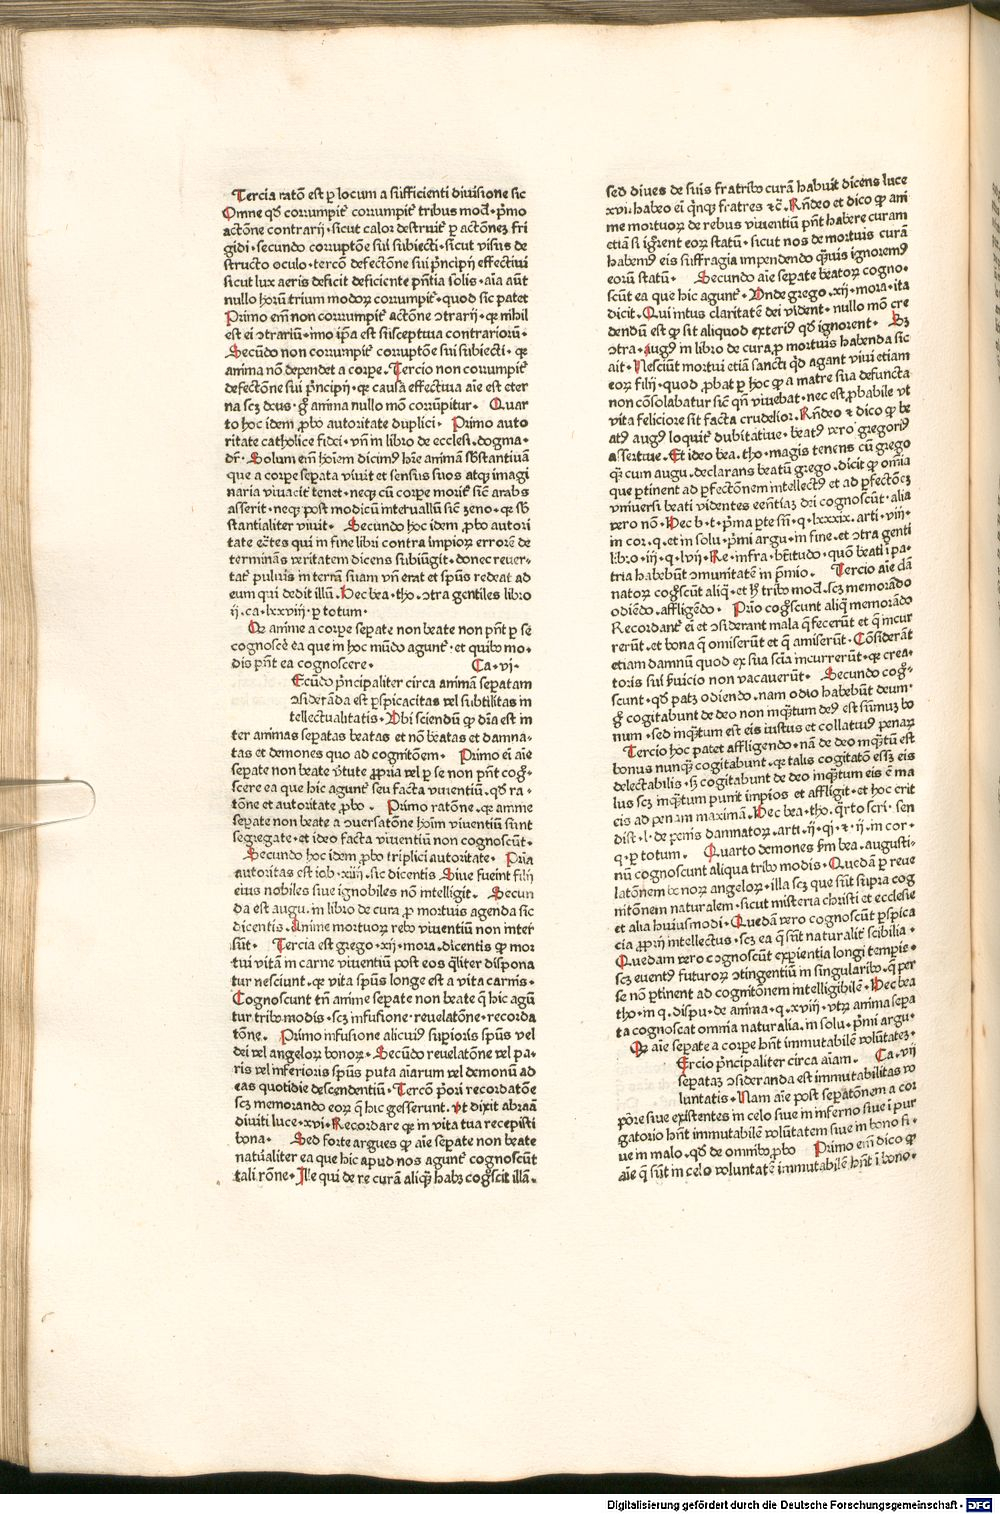 Tercia ratõ est ꝑ locum a sufficienti diuisione sic
Omne qđ corrumpit᷑ corrumpit᷑ tribus modꝭ · p̃mo
actõne contrarij · sicut calor destruit᷑ ꝑ actõneꝫ fri
gidi · secundo corruptõne sui subiecti · sicut visus de
structo oculo · tercõ defectõne sui p̃ncipij effectiui
sicut lux aeris deficit deficiente p̃ntia solis · aĩa aũt
nullo hoꝝ trium modoꝝ corrumpit᷑ · quod sic patet
Primo em̃ non corrumpit᷑ actõne ꝯtrarij · qꝛ nihil
est ei ꝯtrariũ · imo ip̃a est susceptiua contrariorũ ·
Secũdo non corrumpit᷑ corruptõne sui subiecti · qꝛ
anima nõ dependet a corpe · Tercio non corrumpit᷑
defectõne sui p̃ncipij · qꝛ causa effectiua aĩe est eter
na scꝫ deus · g̊ anima nullo mõ corrũpitur · Quar
to hoc idem ꝓbo autoritate duplici · Primo auto
ritate catholice fidei · vñ in libro de ecclesi · dogma ·
dr̃ · Solum em̃ hoĩem dicimꝰ hr̃e animã sb̃stantiuã
que a corpe sepata viuit et sensus suos atqꝫ imagi
naria viuacit᷑ tenet · neqꝫ cũ corpe morit᷑ sic̃ arabs
asserit · neqꝫ post modicũ interuallũ sic̃ ʒeno · qꝛ sb̃
stantialiter viuit · Secundo hoc idem ꝓbo autori
tate ecc̃tes qui in fine libri contra impioꝝ errorẽ de
terminãs veritatem dicens subiũgit · donec reuer-
tat᷑ puluis in terrã suam vñ erat et spũs redeat ad
eum qui dedit illũ · Hec bea · tho · ꝯtra gentiles libro
ij · ca · lxxviij · ꝑ totum ·
Qꝛ anime a corpe sepate non beate non pñt ꝑ se
cognoscẽ ea que in hoc mũdo agunt᷑ · et quibꝰ mo ·
dis pñt ea cognoscere · Ca · vj ·
Secũdo p̃ncipaliter circa animã sepatam
ꝯsiderãda est ꝑspicacitas vel subtilitas in
tellectualitatis · Vbi sciendũ ꝙ dr̃a est in
ter animas sepatas beatas et nõ beatas et damna-
tas et demones quo ad cognitõem · Primo em̃ aĩe
sepate non beate v̾tute ꝓpria vel ꝑ se non pñt cog̊-
scere ea que hic agunt᷑ seu facta viuentiũ · qđ ra-
tõne et autoritate ꝓbo · Primo ratõne · qꝛ anime
sepate non beate a ꝯuersatõne hoĩm viuentiũ sunt
segregate · et ideo facta viuentiũ non cognoscũt ·
Secundo hoc idem ꝓbo triplici autoritate · Pria
autoritas est iob · xiiij · sic dicentis Siue fuerint filij
eius nobiles siue ignobiles nõ intelligit · Secun
da est augu · in libro de cura ꝓ mortuis agenda sic
dicentis · Anime mortuoꝝ rebꝰ viuentiũ non inter
sũt · Tercia est grego · xij · mora · dicentis ꝙ mor
tui vitã in carne viuentiũ post eos qliter dispona
tur nesciunt · qꝛ vita spũs longe est a vita carnis ·
Cognoscunt tñ anime sepate non beate q̃ hic agũ
tur tribꝰ modis · scꝫ infusione · reuelatõne · recorda
tõne · Primo infusione alicuiꝰ supioris spũs vel
dei vel angeloꝝ bonoꝝ · Secũdo reuelatõne vel pa-
ris vel inferioris spũs puta aĩarum vel demonũ ad
eas quotidie descendentiũ · Tercõ p̃ori recordatõe
scꝫ memorando eoꝝ q̃ hic gesserunt · vt dixit abraã
diuiti luce · xvi · Recordare qꝛ in vita tua recepisti
bona · Sed forte argues ꝙ aĩe sepate non beate
naturaliter ea que hic apud nos agunt᷑ cognoscũt
tali rõne · Ille qui de re curã aliqꝫ habꝫ cog̊scit illã ·
sed diues de suis fratribꝰ curã habuit dicens luce
xvi · habeo em̃ qnqꝫ fratres ⁊c̃ · Rñdeo et dico ꝙ ani
me mortuoꝝ de rebus viuentiũ pñt habere curam
etiã si igrent eoꝝ statũ · sicut nos de mortuis curã
habemꝰ eis suffragia impendendo qmuis ignoremꝰ
eorũ statũ · Secundo aĩe sepate beatoꝝ cogno ·
scũt ea que hic agunt᷑ · Vnde grego · xij · mora · ita
dicit · Qui intus claritatẽ dei vident · nullo mõ cre
dendũ est ꝙ sit aliquod exteriꝰ qđ ignorent · Sꝫ
ꝯtra · Augꝰ in libro de cura ꝓ mortuis habenda sic
ait · Nesciũt mortui etiã sancti qd agant viui etiam
eoꝝ filij · quod ꝓbat ꝑ hoc ꝙ a matre sua defuncta
non cõsolabatur sic̃ qñ viuebat · nec est ꝓbabile vt
vita feliciore sit facta crudelior · Rñdeo ⁊ dico ꝙ be
atꝰ augꝰ loquit᷑ dubitatiue · beatꝰ vero gregoriꝰ
assertiue · Et ideo bea · tho · magis tenens cũ grego
qꝫ cum augu · declarans beatũ grego · dicit ꝙ om̃ia
que ꝑtinent ad ꝑfectõnem intellectꝰ et ad ꝑfectõeꝫ
vniuersi beati videntes eeñtiaꝫ dei cognoscũt · alia
vero nõ · Hec b · t · p̃ma parte sñ · q · lxxxix · arti · viij ·
in cor · q · et in solu · p̃mi argu · in fine · et ꝯtra genti
libro · iij · q · lvij · Re · infra · bt̃itudo · quõ beati i pa-
tria habebũt ꝯmunitatẽ in p̃mio · Tercio aĩe dã
natoꝝ cog̊scũt aliq̃ · et hꝰ tribꝰ modꝭ · scꝫ memorãdo
odiẽdo · affligẽdo · Prio cog̊scunt aliq̃ memorãdo
Recordant᷑ em̃ et ꝯsiderant mala q̃ fecerũt et q̃ incur
rerũt · et bona q̃ omiserũt et q̃ amiserũt · Cõsiderãt
etiam damnũ quod ex sua scĩa incurrerũt · qꝛ crea-
toris sui ẜuicio non vacauerũt · Secundo cog̊-
scunt · qđ patꝫ odiendo · nam odio habebũt deum ·
g̊ cogitabunt de deo non inqtum deꝰ est summꝰ bo
num · sed inqtum est eis iustus et collatiuꝰ penaꝝ
Tercio hoc patet affligendo · nã de deo inqtũ est
bonus nunqꝫ cogitabunt · qꝛ talis cogitatõ essꝫ eis
delectabilis · sꝫ cogitabunt de deo inqtum eis ẽ ma
lus scꝫ inqtum punit impios et affligit · et hoc erit
eis ad penam maximã · Hec bea · tho · qrto scri · sen
dist · l · de penis damnatoꝝ · arti · ij · q̃ · ⁊ · ij · in cor ·
q · ꝑ totum · Quarto demones ẜm bea · augusti-
nũ cognoscunt aliqua tribꝰ modis · Quedã ꝑ reue
latõnem bonoꝝ angeloꝝ · illa scꝫ que sũt supra cog
nitõnem naturalem · sicut misteria christi et ecclesie
et alia huiusmodi · Quedã vero cognoscũt ꝑspica
cia ꝓprij intellectus · scꝫ ea q̃ sũt naturalit᷑ scibilia ·
Quedam vero cognoscũt exꝑientia longi tempis ·
scꝫ euentꝰ futuroꝝ ꝯtingentiũ in singularibꝰ · q̃ per
se nõ ꝑtinent ad cognitõnem intelligibilẽ · Hec bea
tho · in q · dispu · de anima · q · xviij · vtꝝ anima sepa
ta cognoscat omnia naturalia · in solu · p̃mi argu ·
Qꝛ aĩe sepate a corpe hñt immutabilẽ volũtateꝫ ·
Tercio p̃ncipaliter circa aĩam · Ca · vij
sepataꝫ ꝯsideranda est immutabilitas vo
luntatis · Nam aĩe post sepatõnem a cor
põre siue existentes in celo siue in inferno siue i pur
gatorio hñt immutabilẽ volũtatem siue in bono si ·
ue in malo · qđ de omnibꝰ ꝓbo Primo em̃ dico ꝙ
aĩe q̃ sũt in celo voluntatẽ immutabilẽ hñt i bono ·
Digitalisierung gefördert durch die Deutsche Forschungsgemeinschaft · DFG